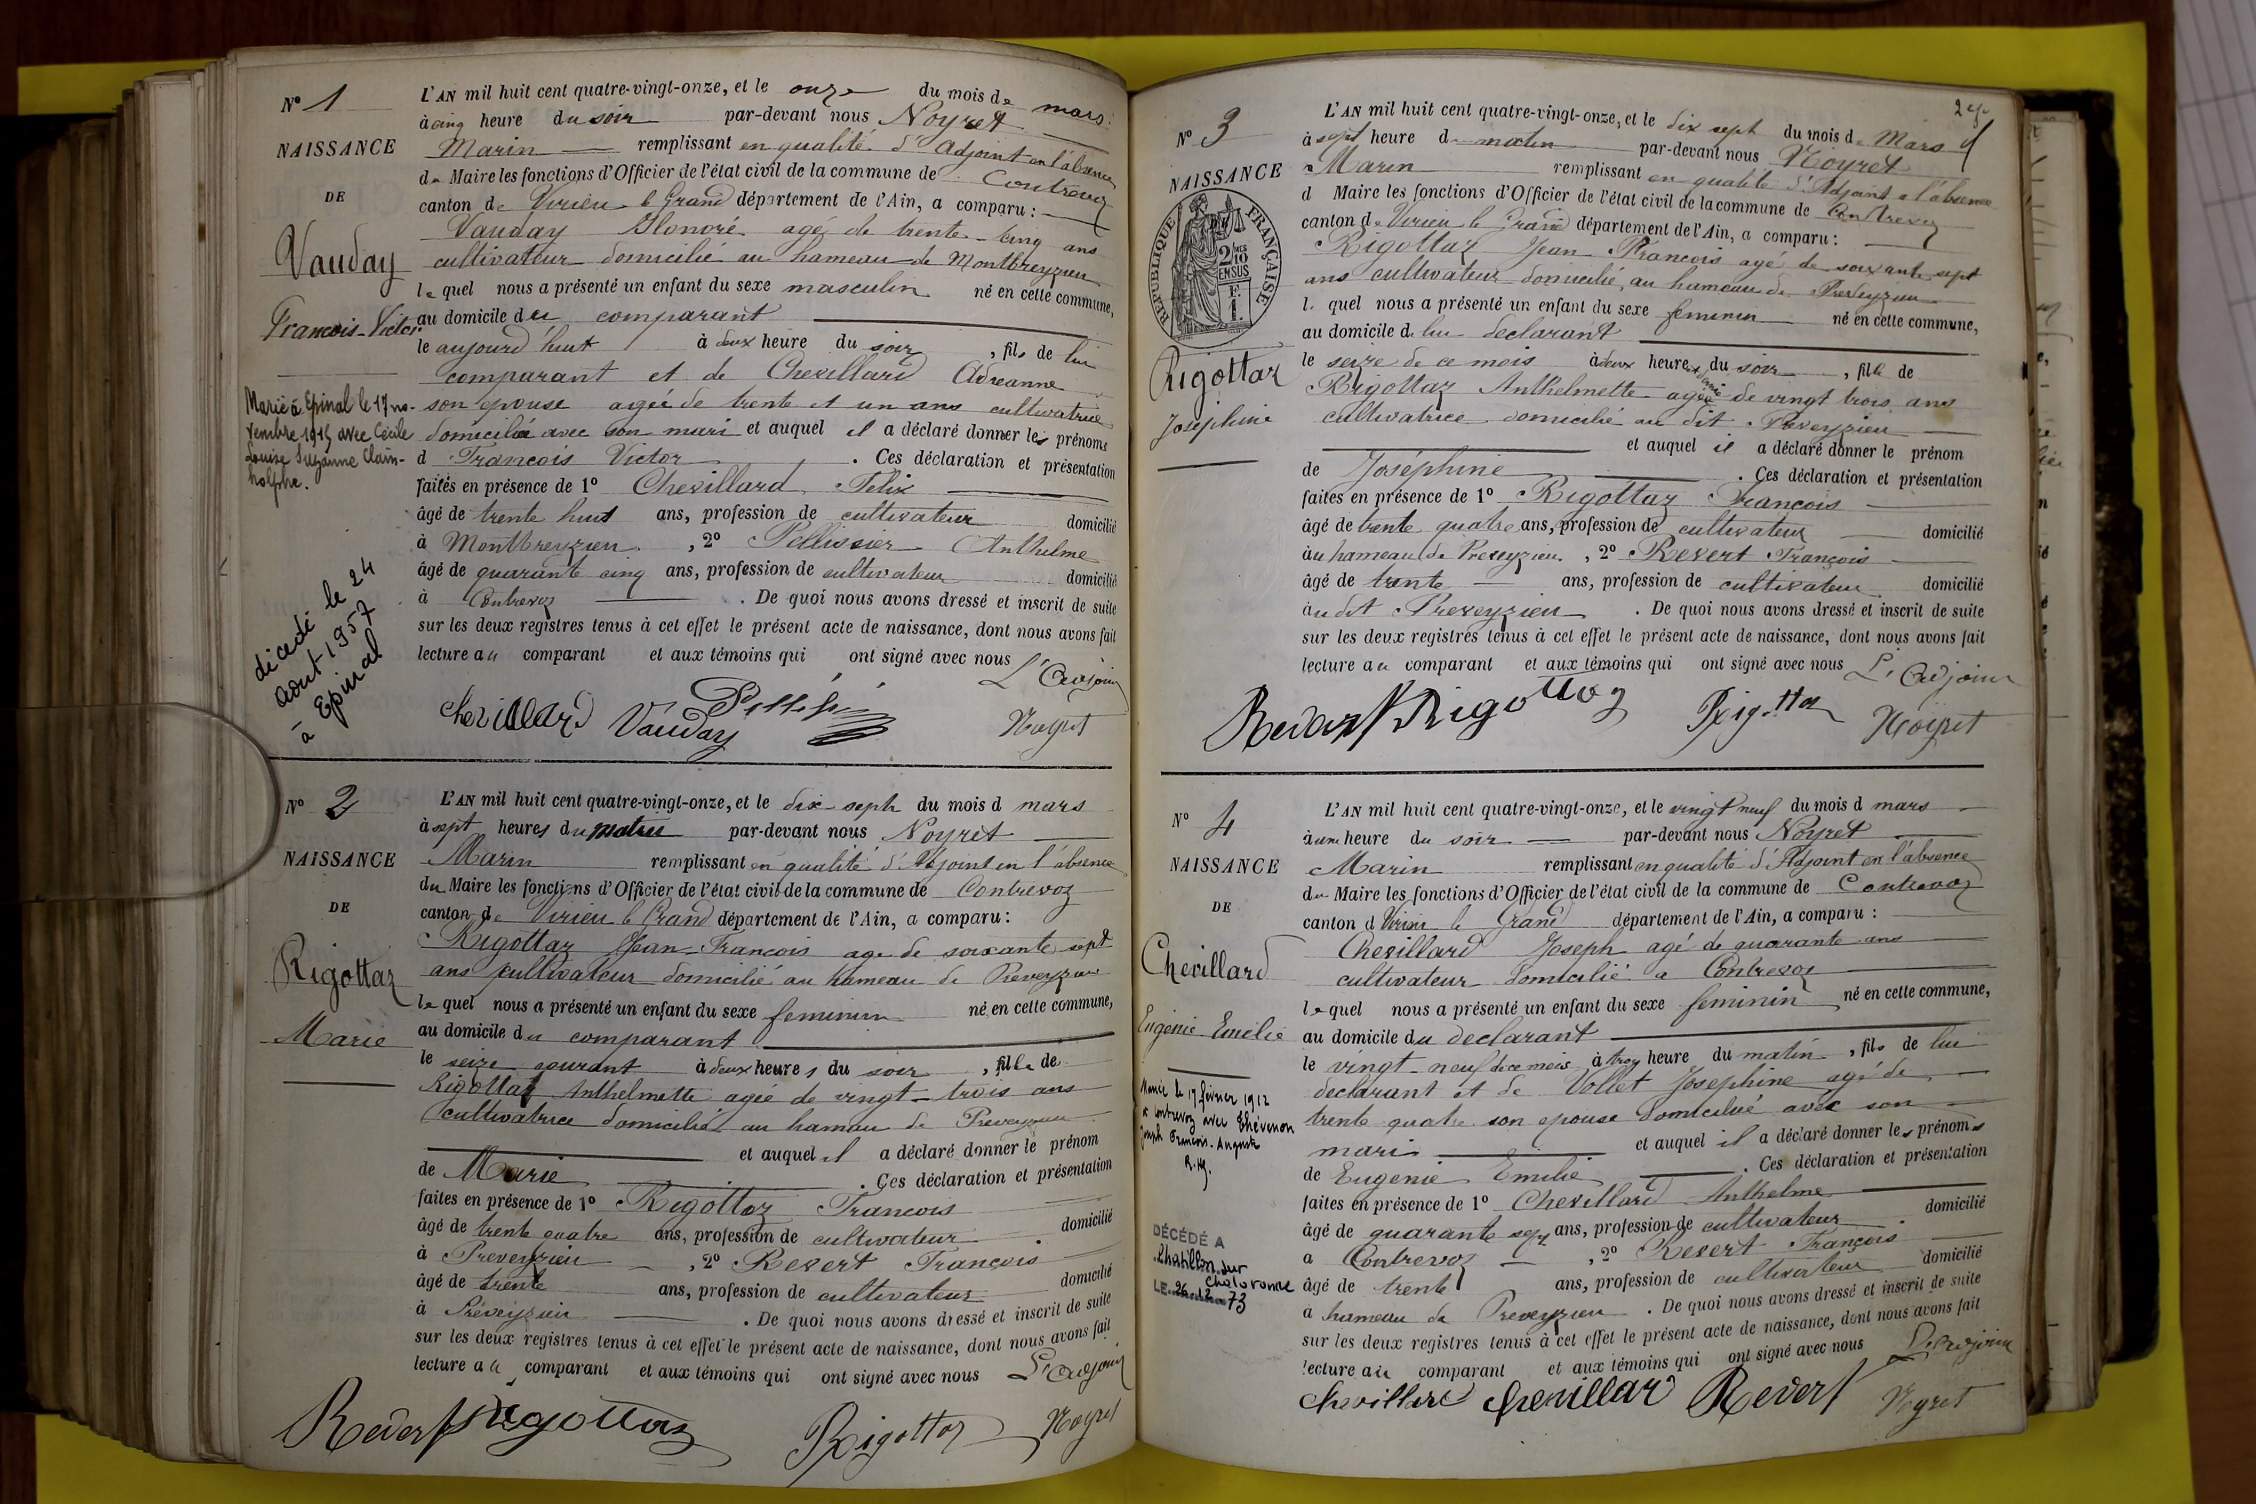 N° 1
NAISSANCE
DE
Vauday
François-Victor
Marié à Epinal le 17 no-
vembre 1915 avec Cécile
Louise Suzanne Clain-
holphe.
décédé le 24
aout 1957
à Epinal
L'AN mil huit cent quatre-vingt-onze, et le onze du mois de mars
à cinq heure du soir par-devant nous Noyret
Marin remplissant en qualité d'adjoint en l'absence
de Maire les fonctions d'Officier de l'état civil de la commune de Contrevoz
canton de Virieu le Grand département de l'Ain, a comparu :
Vauday Honoré agé de trente-cinq ans
cultivateur domicilié au hameau de Montbreyzieu
le quel nous a présenté un enfant du sexe masculin né en cette commune,
au domicile du comparant
le aujourd'huit à deux heure du soir, fils de lui
comparant et de Chevillard Adreanne
son épouse agée de trente et un ans cultivatrice
domicilié avec son mari et auquel il a déclaré donner les prénoms
d François Victor. Ces déclaration et présentation
faites en présence de 1° Chevillard Félix
âgé de trente huit ans, profession de cultivateur domicilié
à Montbreyzieu, 2° Pellissier Anthelme
âgé de quarante cinq ans, profession de cultivateur domicilié
à Contrevoz. De quoi nous avons dressé et inscrit de suite
sur les deux registres tenus à cet effet le présent acte de naissance, dont nous avons fait
lecture au comparant et aux témoins qui ont signé avec nous L'Adjoint
Chevillard Vauday Noyret
N° 2
NAISSANCE
DE
Rigottaz
Marie
L'AN mil huit cent quatre-vingt-onze, et le dix-seph du mois d mars
à sept heures du matin par-devant nous Noyret
Marin remplissant en qualité d'Adjoint en l'absence
du Maire les fonctions d'Officier de l'état civil de la commune de Contrevoz
canton de Virieu le Grand département de l'Ain, a comparu :
Rigottaz Jean-François age de soixante sept
ans cultivateur domicilié au hameau de Preveyzieu
le quel nous a présenté un enfant du sexe feminin né en cette commune,
au domicile du comparant
le seize courant à deux heures du soir, fille de
Rigottaz Anthelmette agée de vingt-trois ans
cultivatrice domicilié au hameau de Preveyzieu
et auquel il a déclaré donner le prénom
de Marie. Ces déclaration et présentation
faites en présence de 1° Rigottaz François
âgé de trente quatre ans, profession de cultivateur domicilié
à Preveyzieu, 2° Revert François
âgé de trente ans, profession de cultivateur domicilié
à Préveyzieu. De quoi nous avons dressé et inscrit de suite
sur les deux registres tenus à cet effet le présent acte de naissance, dont nous avons fait
lecture au comparant et aux témoins qui ont signé avec nous L'Adjoint
Revert Rigottaz Rigottaz Noyret
N° 3
NAISSANCE
RÉPUBLIQUE FRANÇAISE
2/10 EN SUS
Rigottaz
Joséphine
L'AN mil huit cent quatre-vingt-onze, et le dix sept du mois de Mars
à sept heure de matin par-devant nous Noyret
Marin remplissant en qualité d'Adjoint a l'absence
d Maire les fonctions d'Officier de l'état civil de la commune de Contrevoz
canton de Virieu le Grand département de l'Ain, a comparu :
Rigottaz Jean François agé de soixante sept
ans cultivateur domicilié au hameau de Preveyzieu
l. quel nous a présenté un enfant du sexe feminin né en cette commune,
au domicile de lui declarant
le seize de ce mois à deux heures du soir, fille de
Rigottaz Anthelmette agée de vingt trois ans
cultivatrice domicilié au dit Preveyzieu
et auquel il a déclaré donner le prénom
de Joséphine. Ces déclaration et présentation
faites en présence de 1° Rigottaz François
âgé de trente quatre ans, profession de cultivateur domicilié
à au hameau de Preveyzieu, 2° Revert François
âgé de trente ans, profession de cultivateur domicilié
à au dit Preveyzieu. De quoi nous avons dressé et inscrit de suite
sur les deux registres tenus à cet effet le présent acte de naissance, dont nous avons fait
lecture au comparant et aux témoins qui ont signé avec nous L'Adjoint
Revert Rigottaz Rigottaz Noyret
N° 4
NAISSANCE
DE
Chevillard
Eugénie Emélie
Mariée le 17 février 1912
à Contrevoz avec Thévenon
Joseph François-Auguste
DÉCÉDÉ A
Chatillon sur
Chalaronne
LE 26.12.73
L'AN mil huit cent quatre-vingt-onze, et le vingt neuf du mois d mars
à une heure du soir par-devant nous Noyret
Marin remplissant en qualité d'Adjoint en l'absence
du Maire les fonctions d'Officier de l'état civil de la commune de Contrevoz
canton d Virieu le Grand département de l'Ain, a comparu :
Chevillard Joseph agé de quarante ans
cultivateur domicilié a Contrevoz
le quel nous a présenté un enfant du sexe feminin né en cette commune,
au domicile du declarant
le vingt-neuf de ce mois à troy heure du matin, fils de lui
declarant et de Vollet Josephine agé de
trente quatre son epouse domicilié avec son
mari et auquel il a déclaré donner les prénoms
de Eugenie Emilie. Ces déclaration et présentation
faites en présence de 1° Chevillard Anthelme
âgé de quarante sept ans, profession de cultivateur domicilié
a Contrevoz, 2° Revert François
âgé de trente ans, profession de cultivateur domicilié
à hameau de Preveyzieu. De quoi nous avons dressé et inscrit de suite
sur les deux registres tenus à cet effet le présent acte de naissance, dont nous avons fait
lecture au comparant et aux témoins qui ont signé avec nous L'Adjoint
Chevillard Chevillard Revert Noyret